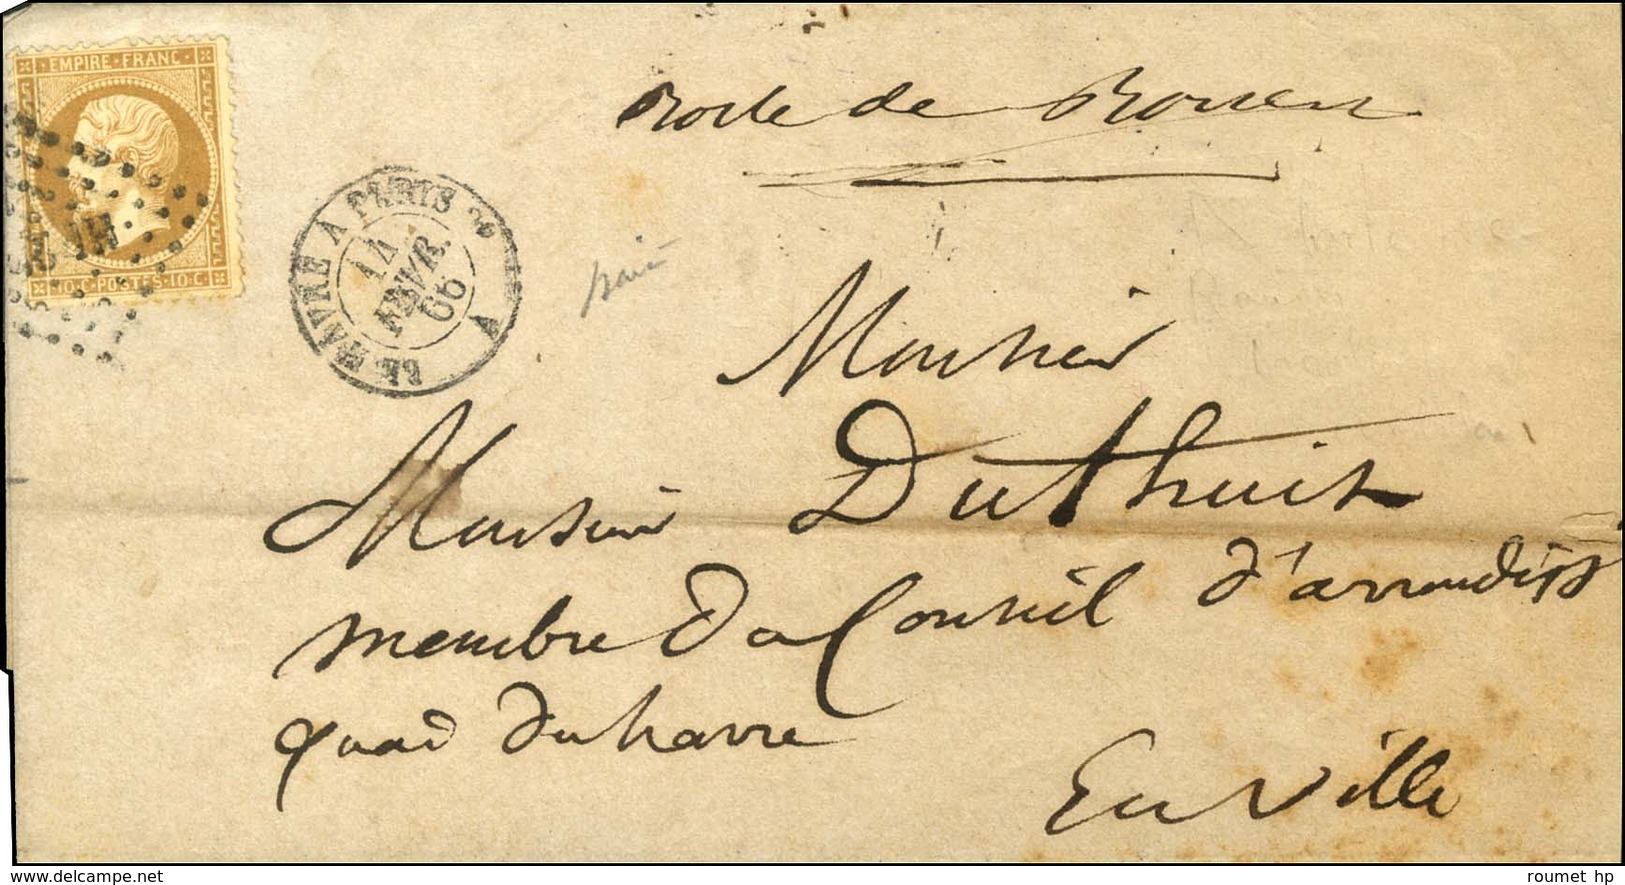 EMPIRE·FRANC·
10·C·POSTES·10·C·
Poste de Rouen
LE HAVRE A PARIS 2°
11
FEVR.
66
A
Monsieur
Monsieur Duthuit
membre du Conseil d'arrondiss
quai du havre
En ville
roumet hp
www.delcampe.net